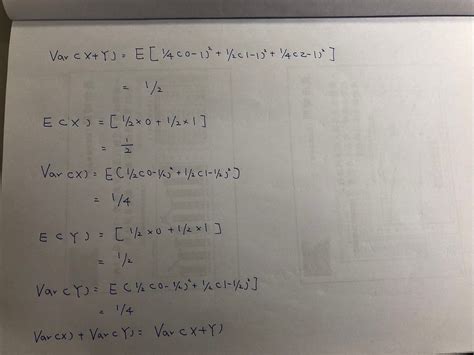 Var(X+Y) = E[ 1/4(0-1)² + 1/2(1-1)² + 1/4(2-1)² ]
= 1/2
E(X) = [ 1/2×0 + 1/2×1 ]
= 1/2
Var(X) = E( 1/2(0-1/2)² + 1/2(1-1/2)² )
= 1/4
E(Y) = [ 1/2×0 + 1/2×1 ]
= 1/2
Var(Y) = E( 1/2(0-1/2)² + 1/2(1-1/2)² ]
= 1/4
Var(X) + Var(Y) = Var(X+Y)